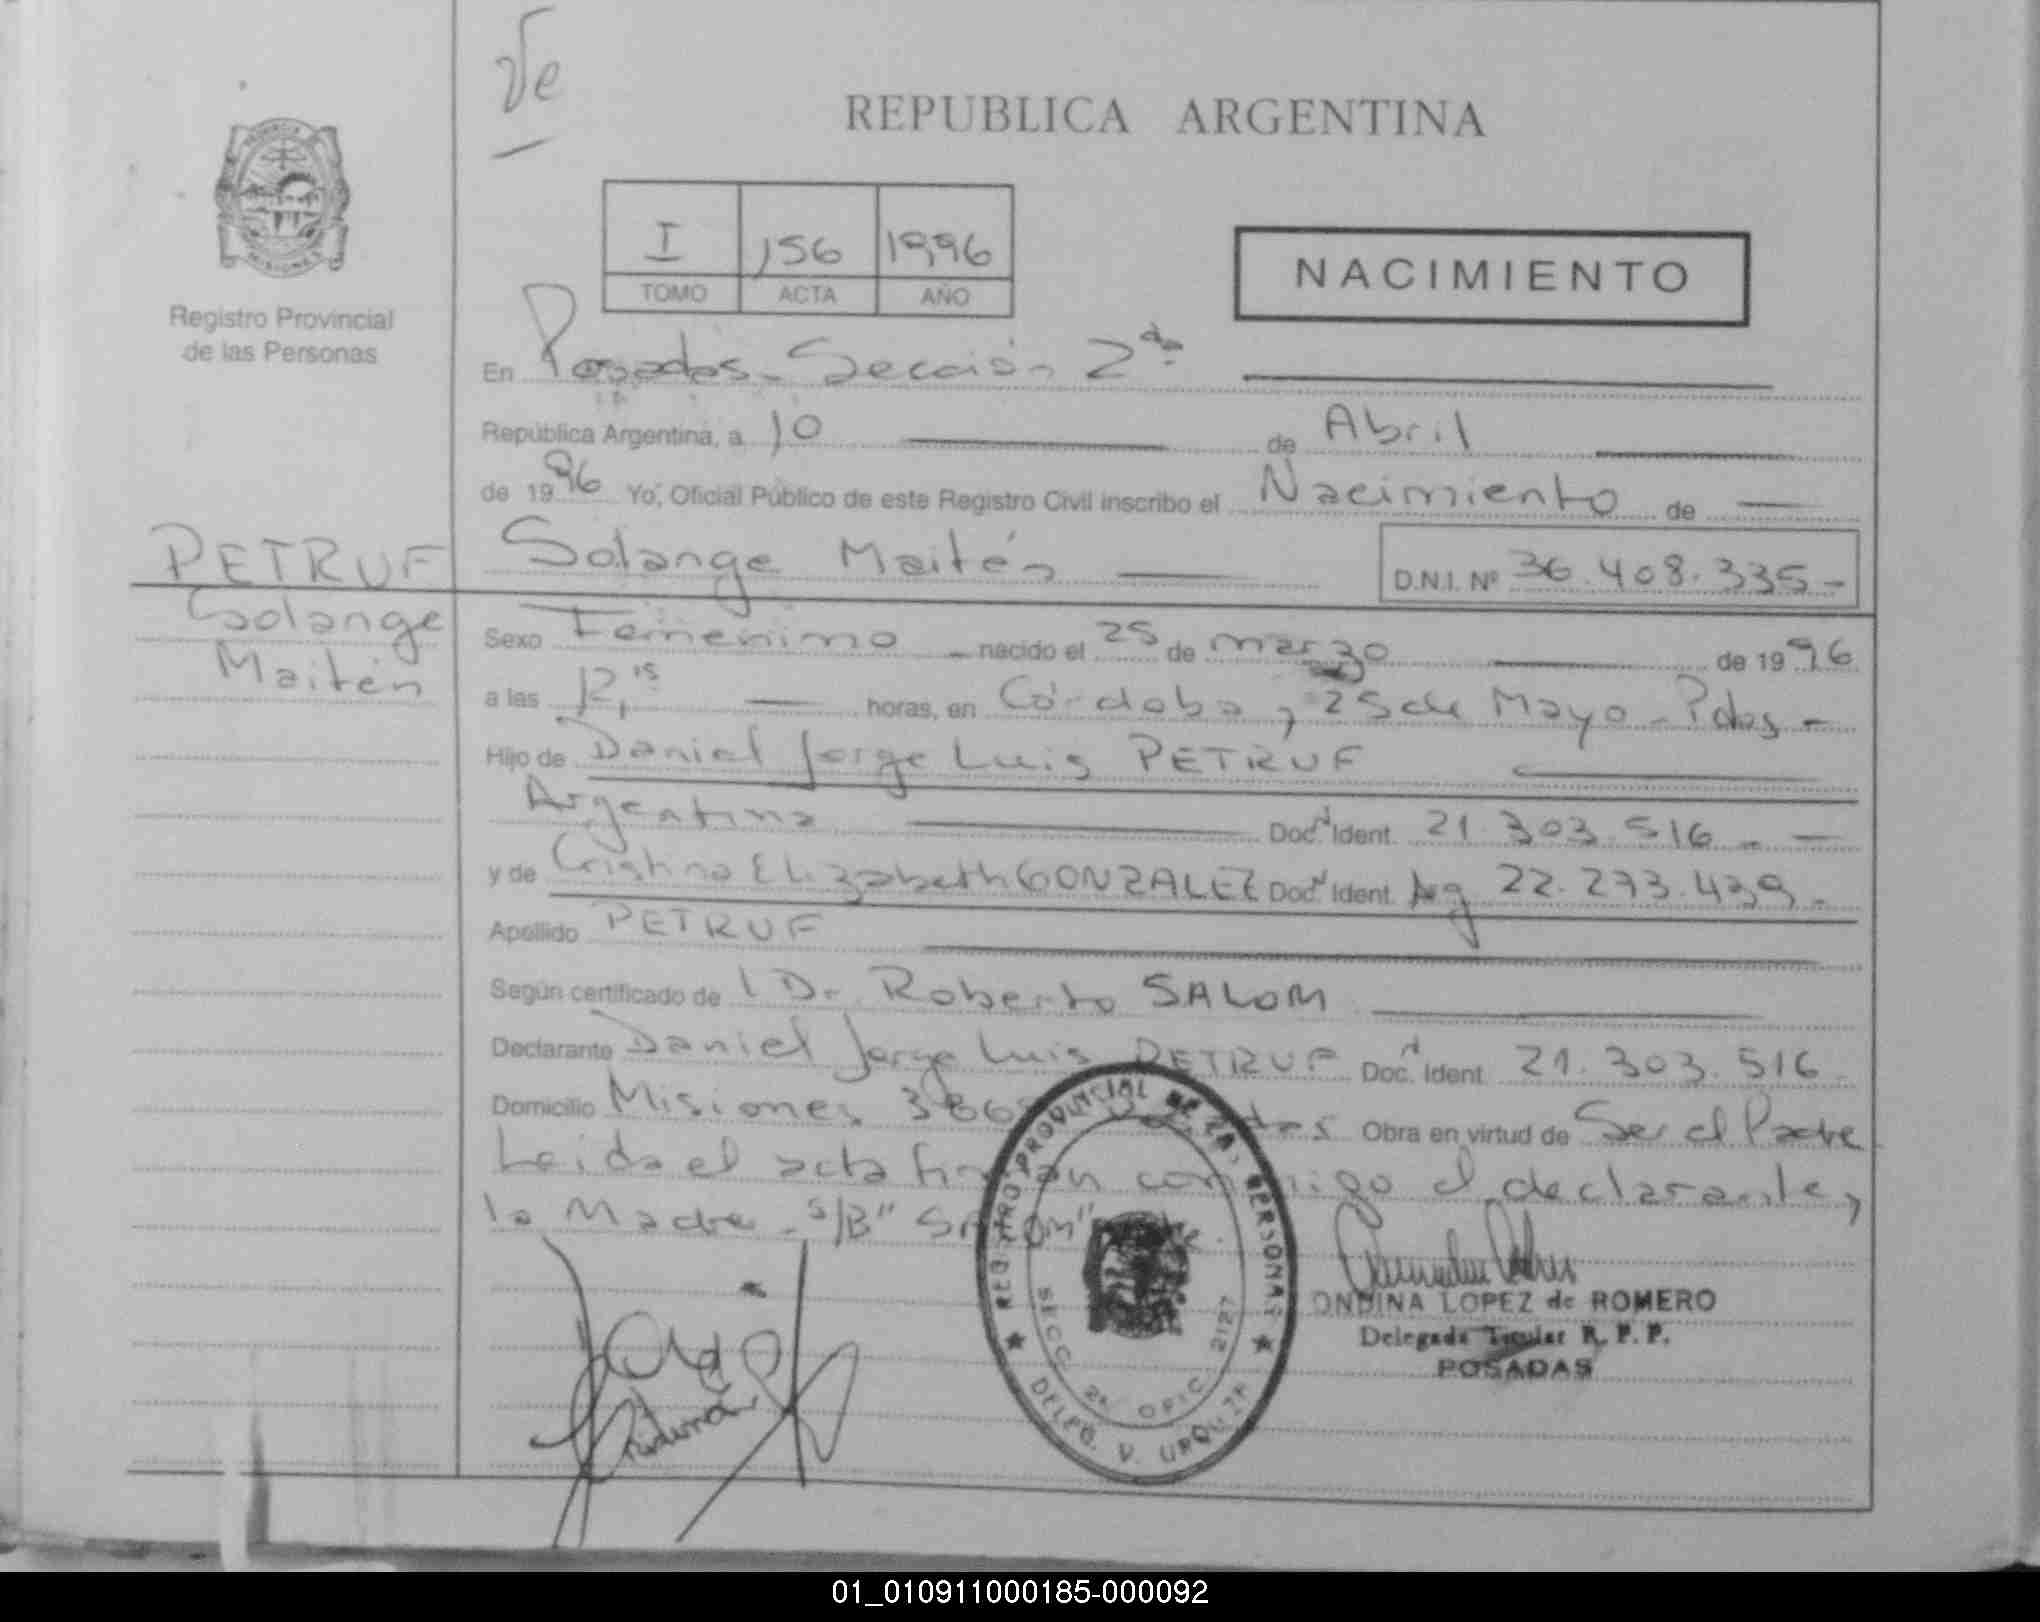 Ve
REPUBLICA ARGENTINA
I 156 1996
TOMO ACTA AÑO
NACIMIENTO
MISIONES
Registro Provincial
de las Personas
En Posadas - Sección 2da
República Argentina, a 10 de Abril
de 1996 Yo, Oficial Público de este Registro Civil inscribo el Nacimiento de
PETRUF
Solange
Maitén
Solange Maitén D.N.I. Nº 36.408.335-
Sexo Femenino nacido el 25 de marzo de 1996
a las 12,15 horas, en Córdoba y 25 de Mayo - Pdas -
Hijo de Daniel Jorge Luis PETRUF
Argentina Doc. Ident. 21.303.516 -
y de Cristina Elizabeth GONZALEZ Doc. Ident. Arg 22.273.439 -
Apellido PETRUF
Según certificado de Dr. Roberto SALOM
Declarante Daniel Jorge Luis PETRUF Doc. Ident. 21.303.516
Domicilio Misiones Obra en virtud de Ser el Padre
Leida el acta firman conmigo el declarante y
la Madre - S/B" SALOM"
REGISTRO PROVINCIAL DE LAS PERSONAS
SECC. 2a OFIC. 2127
DELEG. V. URQUIZA
ONDINA LOPEZ de ROMERO
Delegada Titular R. P. P.
POSADAS
01_010911000185-000092